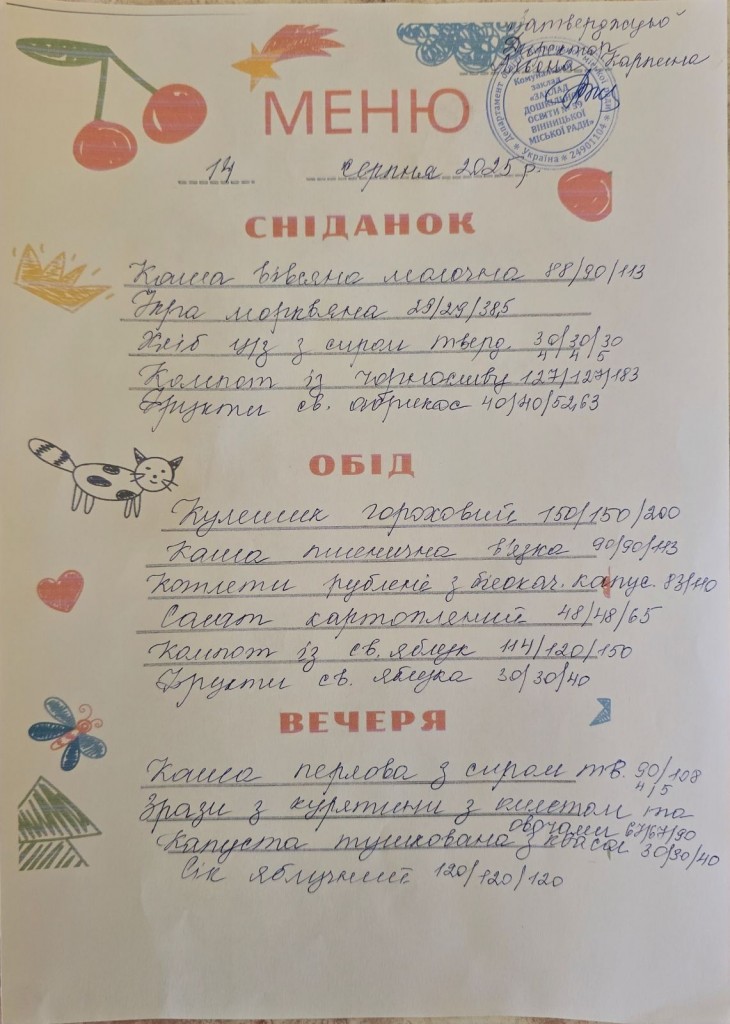 затверджую
Директор
Альона Карпина
Департамент
Комунальний
заклад
«ЗАКЛАД
ДОШКІЛЬНОЇ
ОСВІТИ № 39
ВІННИЦЬКОЇ
МІСЬКОЇ РАДИ»
Україна * 24901104 *
МЕНЮ
14 серпня 2025 р.
СНІДАНОК
Каша вівсяна молочна 88/90/113
Ікра морквяна 29/29/38,5
Хліб ц/з з сиром тверд. 30/30/30
4 4 5
Компот із чорносливу 127/127/183
Фрукти св. абрикос 40/40/52,63
ОБІД
Кулешик гороховий 150/150/200
Каша пшенична в'язка 90/90/113
Котлети рублені з білокач. капус. 83/110
Салат картопляний 48/48/65
Компот із св. яблук 114/120/150
Фрукти св. яблука 30/30/40
ВЕЧЕРЯ
Каша перлова з сиром тв. 90/108
4/5
Зрази з курятини з омлетом та
овочами 67/67/90
Капуста тушкована з квасол 30/30/40
Сік яблучний 120/120/120